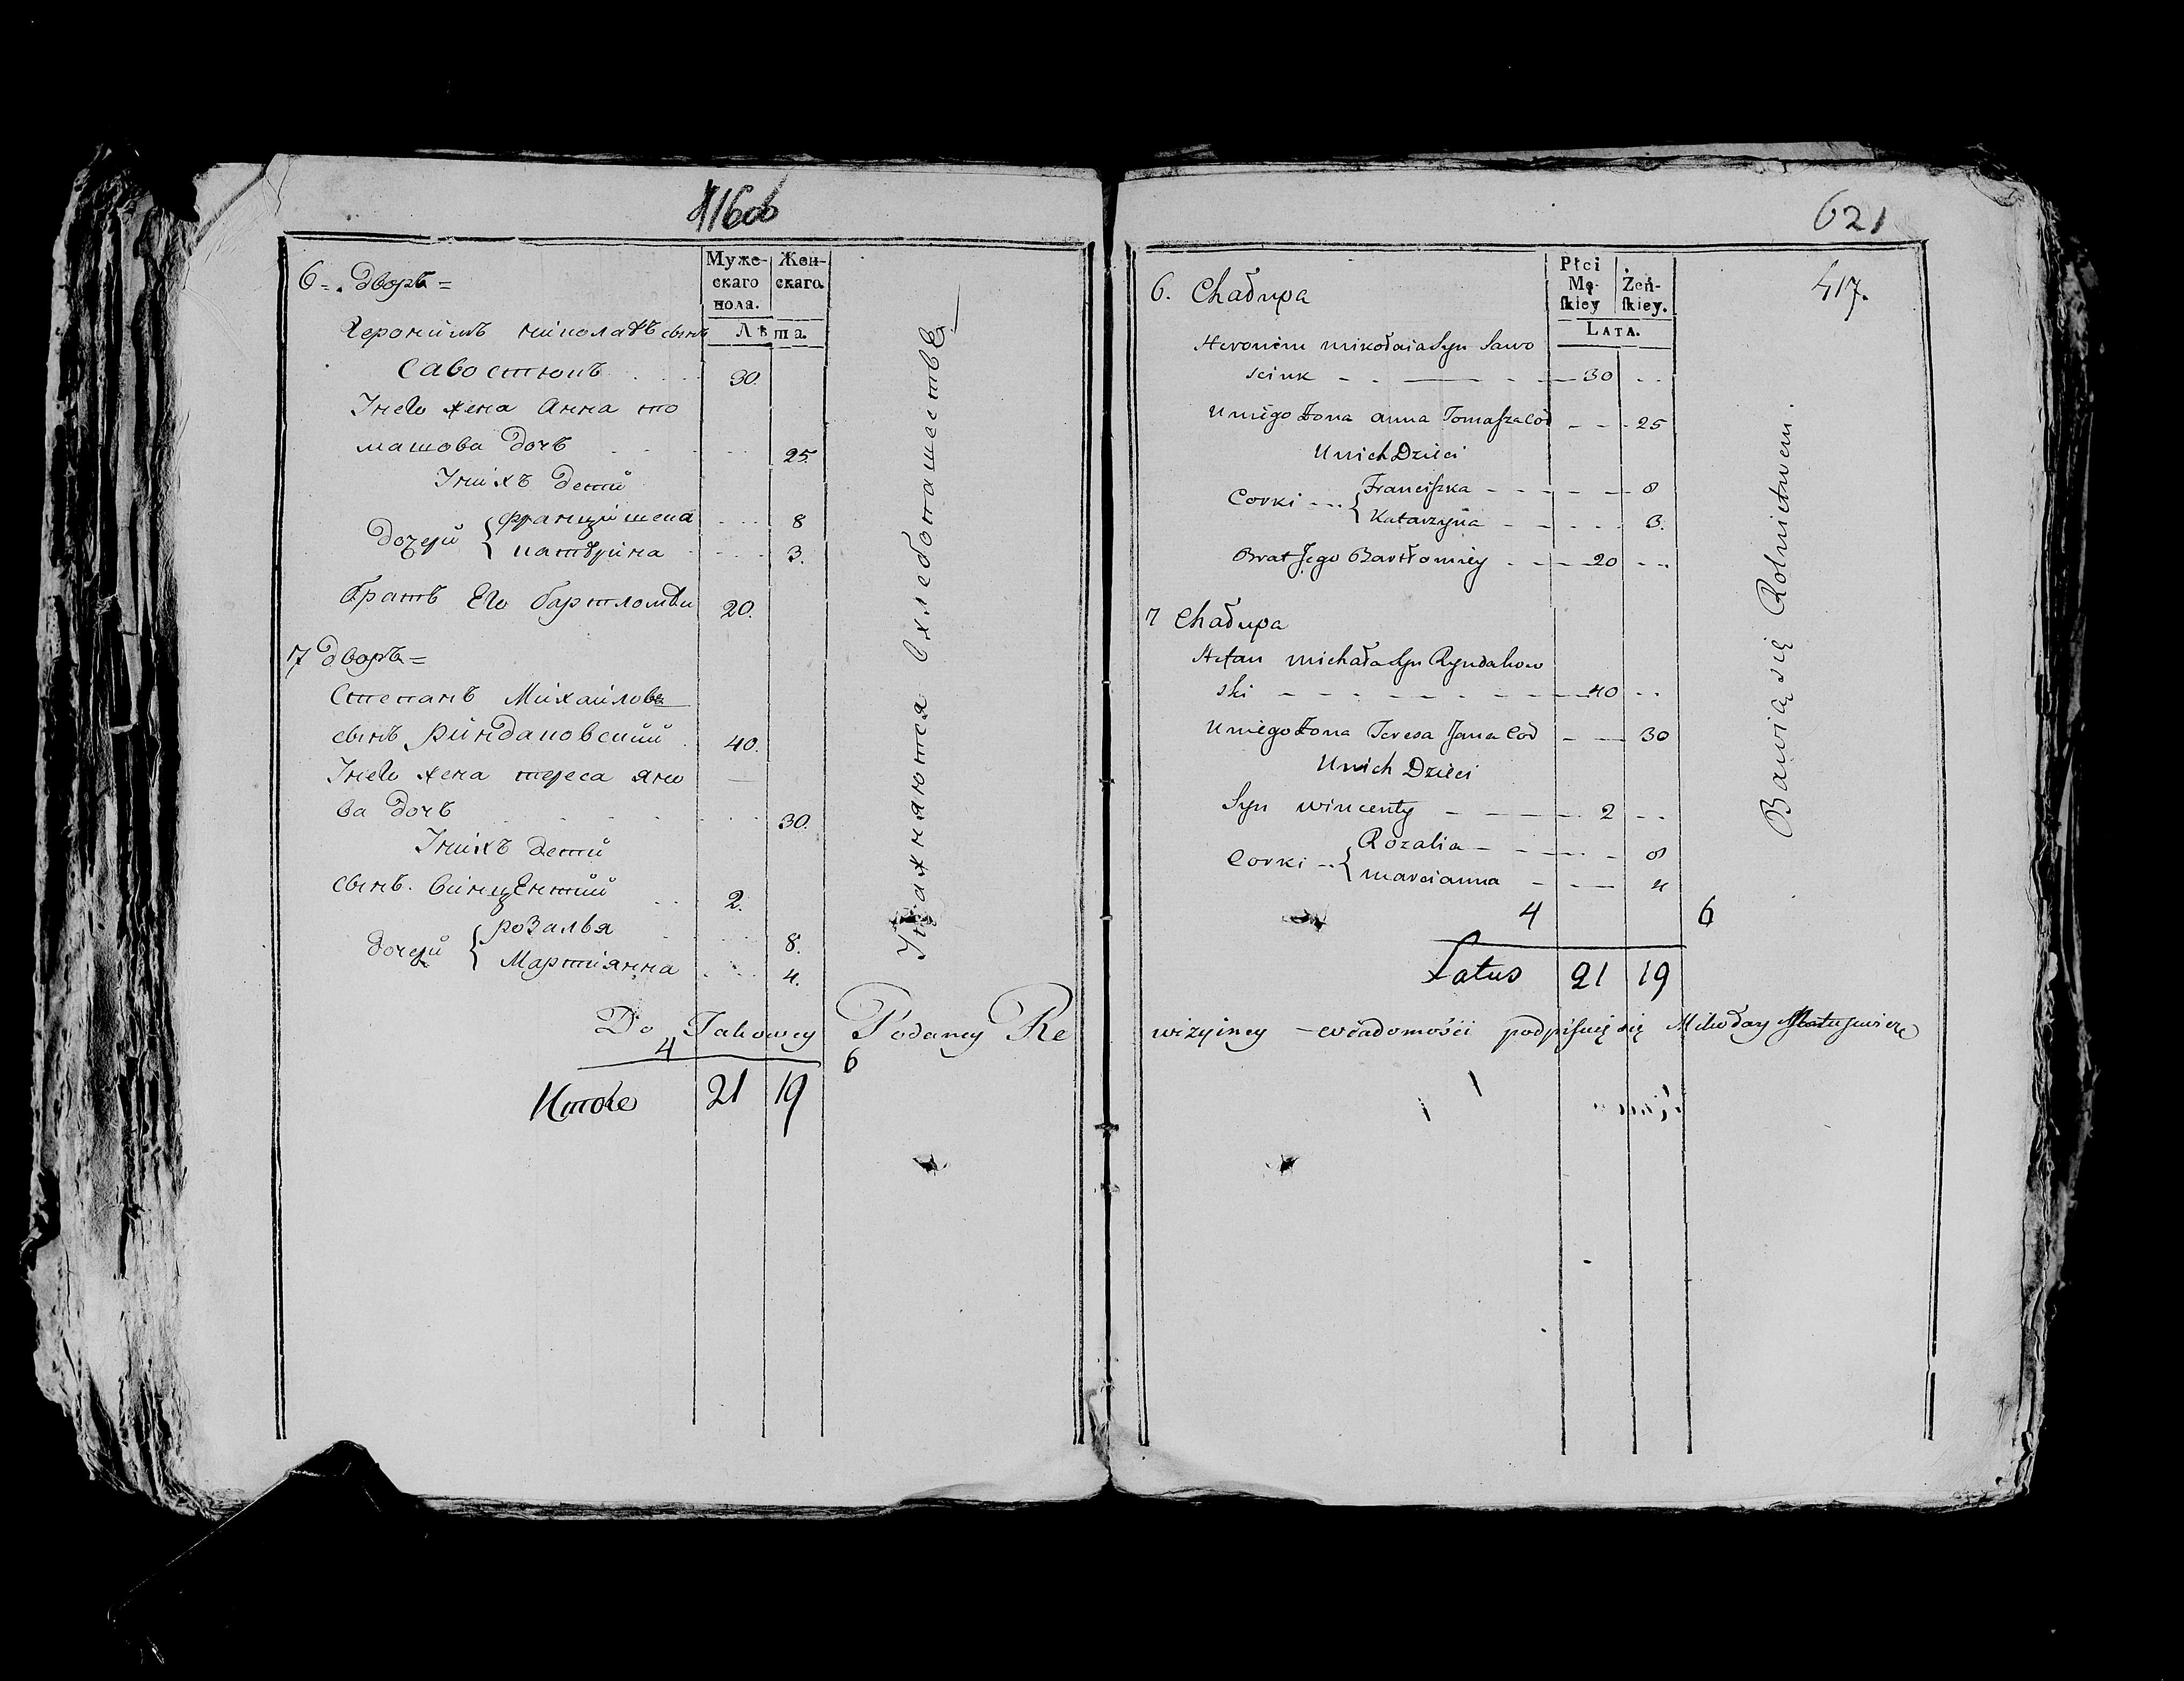 416об
Муже-
скаго
пола.
Жен-
скаго.
Лѣта.
6 = Дворъ =
Херонимъ миколаевъ сынъ
Савостюкъ . . . 30.
Унего жена Анна то
машова дочь . . . 25.
Унихъ детий
дочерий { францишека . . . 8
катерина . . . 3.
братъ Его бартломей 20.
7 дворъ =
Степанъ Михайловъ
сынъ риндаковский . 40.
Унего жена тереса яно
ва дочь . . . 30.
Унихъ детий
сынъ. винцентий . . 2.
дочерий { розалья . . . 8.
Мартiянна . . . 4.
Упражняются вхлебопашестве
4 6
Итого 21 19
621
417.
Płci
Mę-
ſkiey
Żeń-
ſkiey.
LATA.
6. Chałupa
Heronim mikołaia Syn Sawo
sciuk - - 30 - -
U niego Żona anna Tomaszа Cor - - 25
U nich Dzieci
Corki - - { Franciszka - - - 8
Katarzyna - - - 3.
Brat Jego Bartłomiey - - 20 - -
7 Chałupa
Stefan michała Syn Ryndakow
ski - - - 40 - -
U niego Żona Teresa Jana Cor - - 30
U nich Dzieci
Syn wincenty - - - 2 - -
Corki - - { Rozalia - - - 8
marcianna - - - 4
Bawią się Rolnictwem.
4 6
Latus 21 19
Do Takowey Podaney Re wizyiney wiadomości podpisuię się Mikołay Matuszewicz